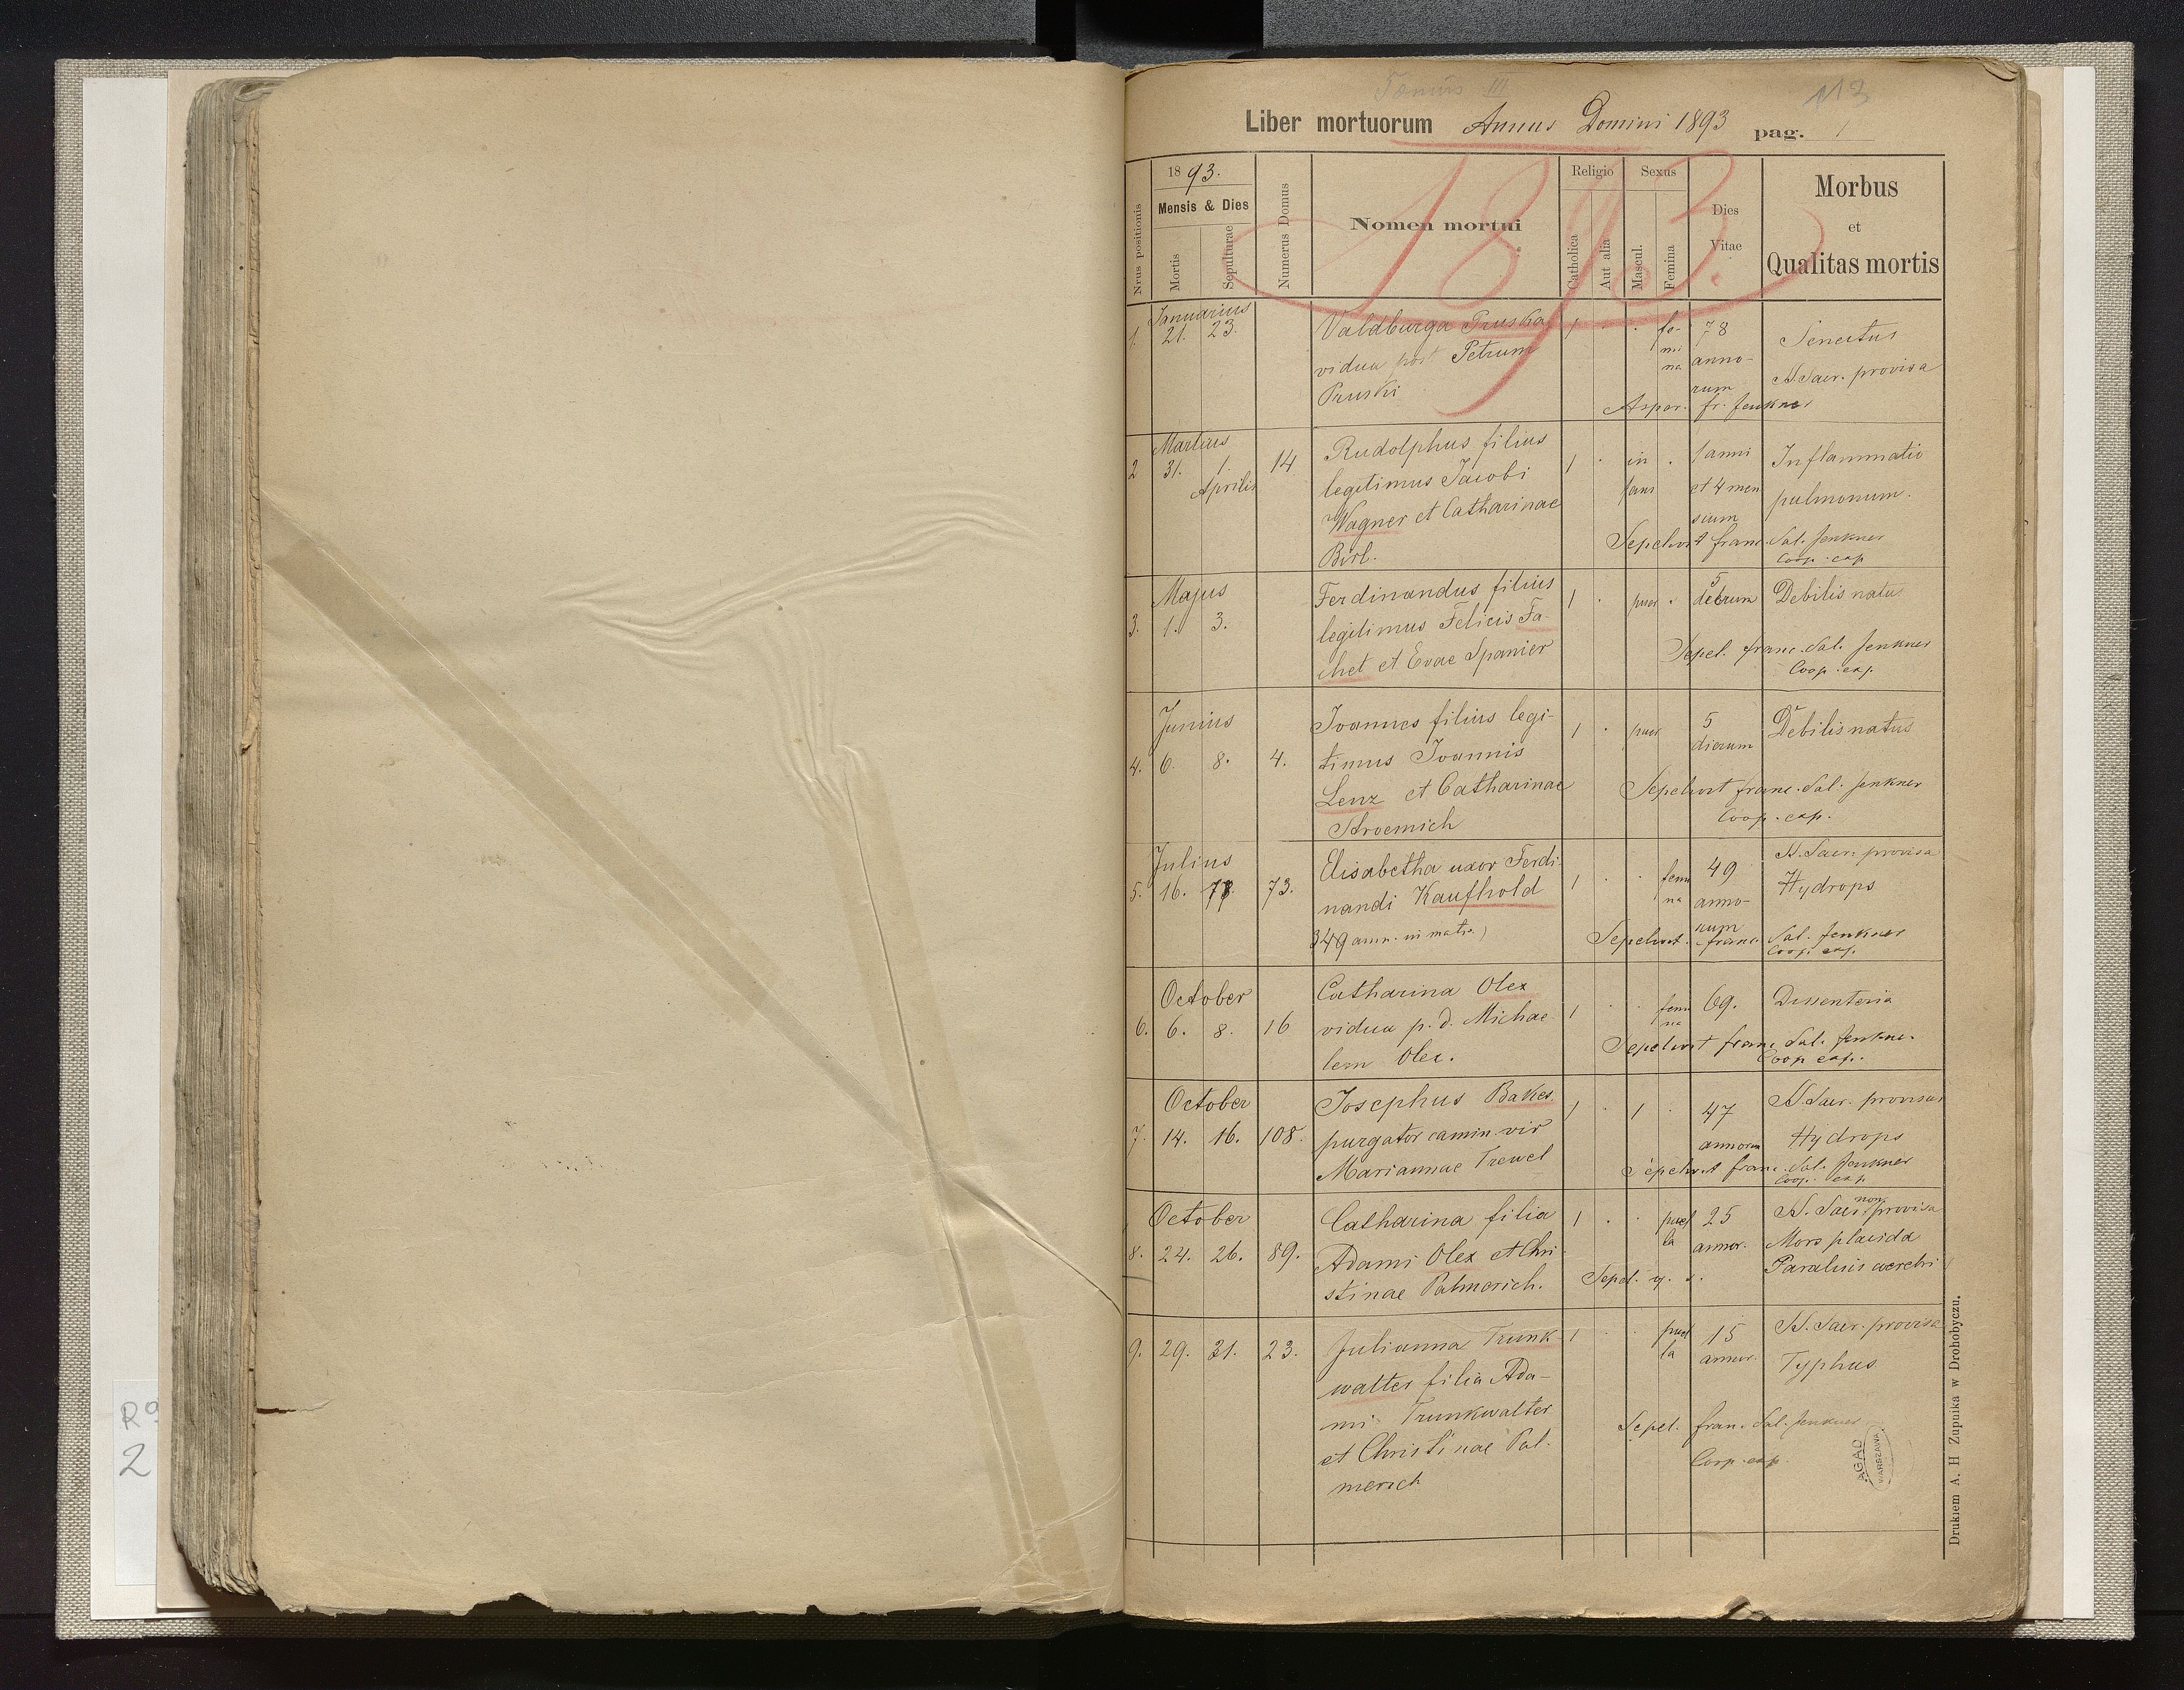 Tomus III
113
Liber mortuorum Annus Domini 1893 pag. 1
1893.
Nrus positionis
1893.
Mensis & Dies
Mortis
Sepulturae
Numerus Domus
Nomen mortui
Religio
Catholica
Aut alia
Sexus
Mascul.
Femina
Dies
Vitae
Morbus
et
Qualitas mortis
Januarius
1. 21. 23.
Valdburga Pruska
vidua post Petrum
Pruski
1 fe-
mi
na
78
anno-
rum
Senectus
S. Sacr. provisa
Asper. fr. Jenkner
Martius
2 31. 1. 14
Aprilis
Rudolphus filius
legitimus Jacobi
Wagner et Catharinae
Birl.
1 in
fans
1 anni
et 4 men
sium
Inflammatio
pulmonum.
Sepelivit franc. Sal. Jenkner
Coop. exp
Majus
3. 1. 3.
Ferdinandus filius
legitimus Felicis Fa-
chet et Evae Spanier
1 puer
5
dierum
Debilis natu
Sepel. franc. Sal. Jenkner
Coop. exp.
Junius
4. 6. 8. 4.
Joannes filius legi-
timus Joannis
Lenz et Catharinae
Stroemich
1 puer
5
dierum
Debilis natus
Sepelivit franc. Sal. Jenkner
Coop. exp.
Julius
5. 16. 73.
Elisabetha uxor Ferdi-
nandi Kaufhold
349 ann. in matr.)
1 femi
na
49
anno-
rum
S. Sacr. provisa
Hydrops
Sepelivit. franc. Sal. Jenkner
Coop. exp.
October
6. 6. 8. 16
Catharina Olex
vidua p. d. Michae-
lem Olex.
1 femi
na
69.
Dissenteria
Sepelivit franc. Sal. Jenkner
Coop exp.
October
7. 14. 16. 108.
Josephus Bakes
purgator camin. vir
Mariannae Trewel
1 1
47
annorum
S. Sacr. provisus
Hydrops
Sepelivit franc. Sal. Jenkner
Coop. exp
October
8. 24. 26. 89.
Catharina filia
Adami Olex et Chri-
stinae Palmerich.
1 puel
la
25
annor.
S. Sacr. non provisa
Mors placida
Paralisis cerebri
Sepel. q. s.
9. 29. 31. 23.
Julianna Trunk-
walter filia Ada-
mi Trunkwalter
et Christinae Pal-
merich
1 puel
la
15
annor.
S. Sacr. provisa
Typhus
Sepel. fran. Sal. Jenkner
Coop. exp.
AGAD
WARSZAWA
Drukiem A. H Zupnika w Drohobyczu.
2